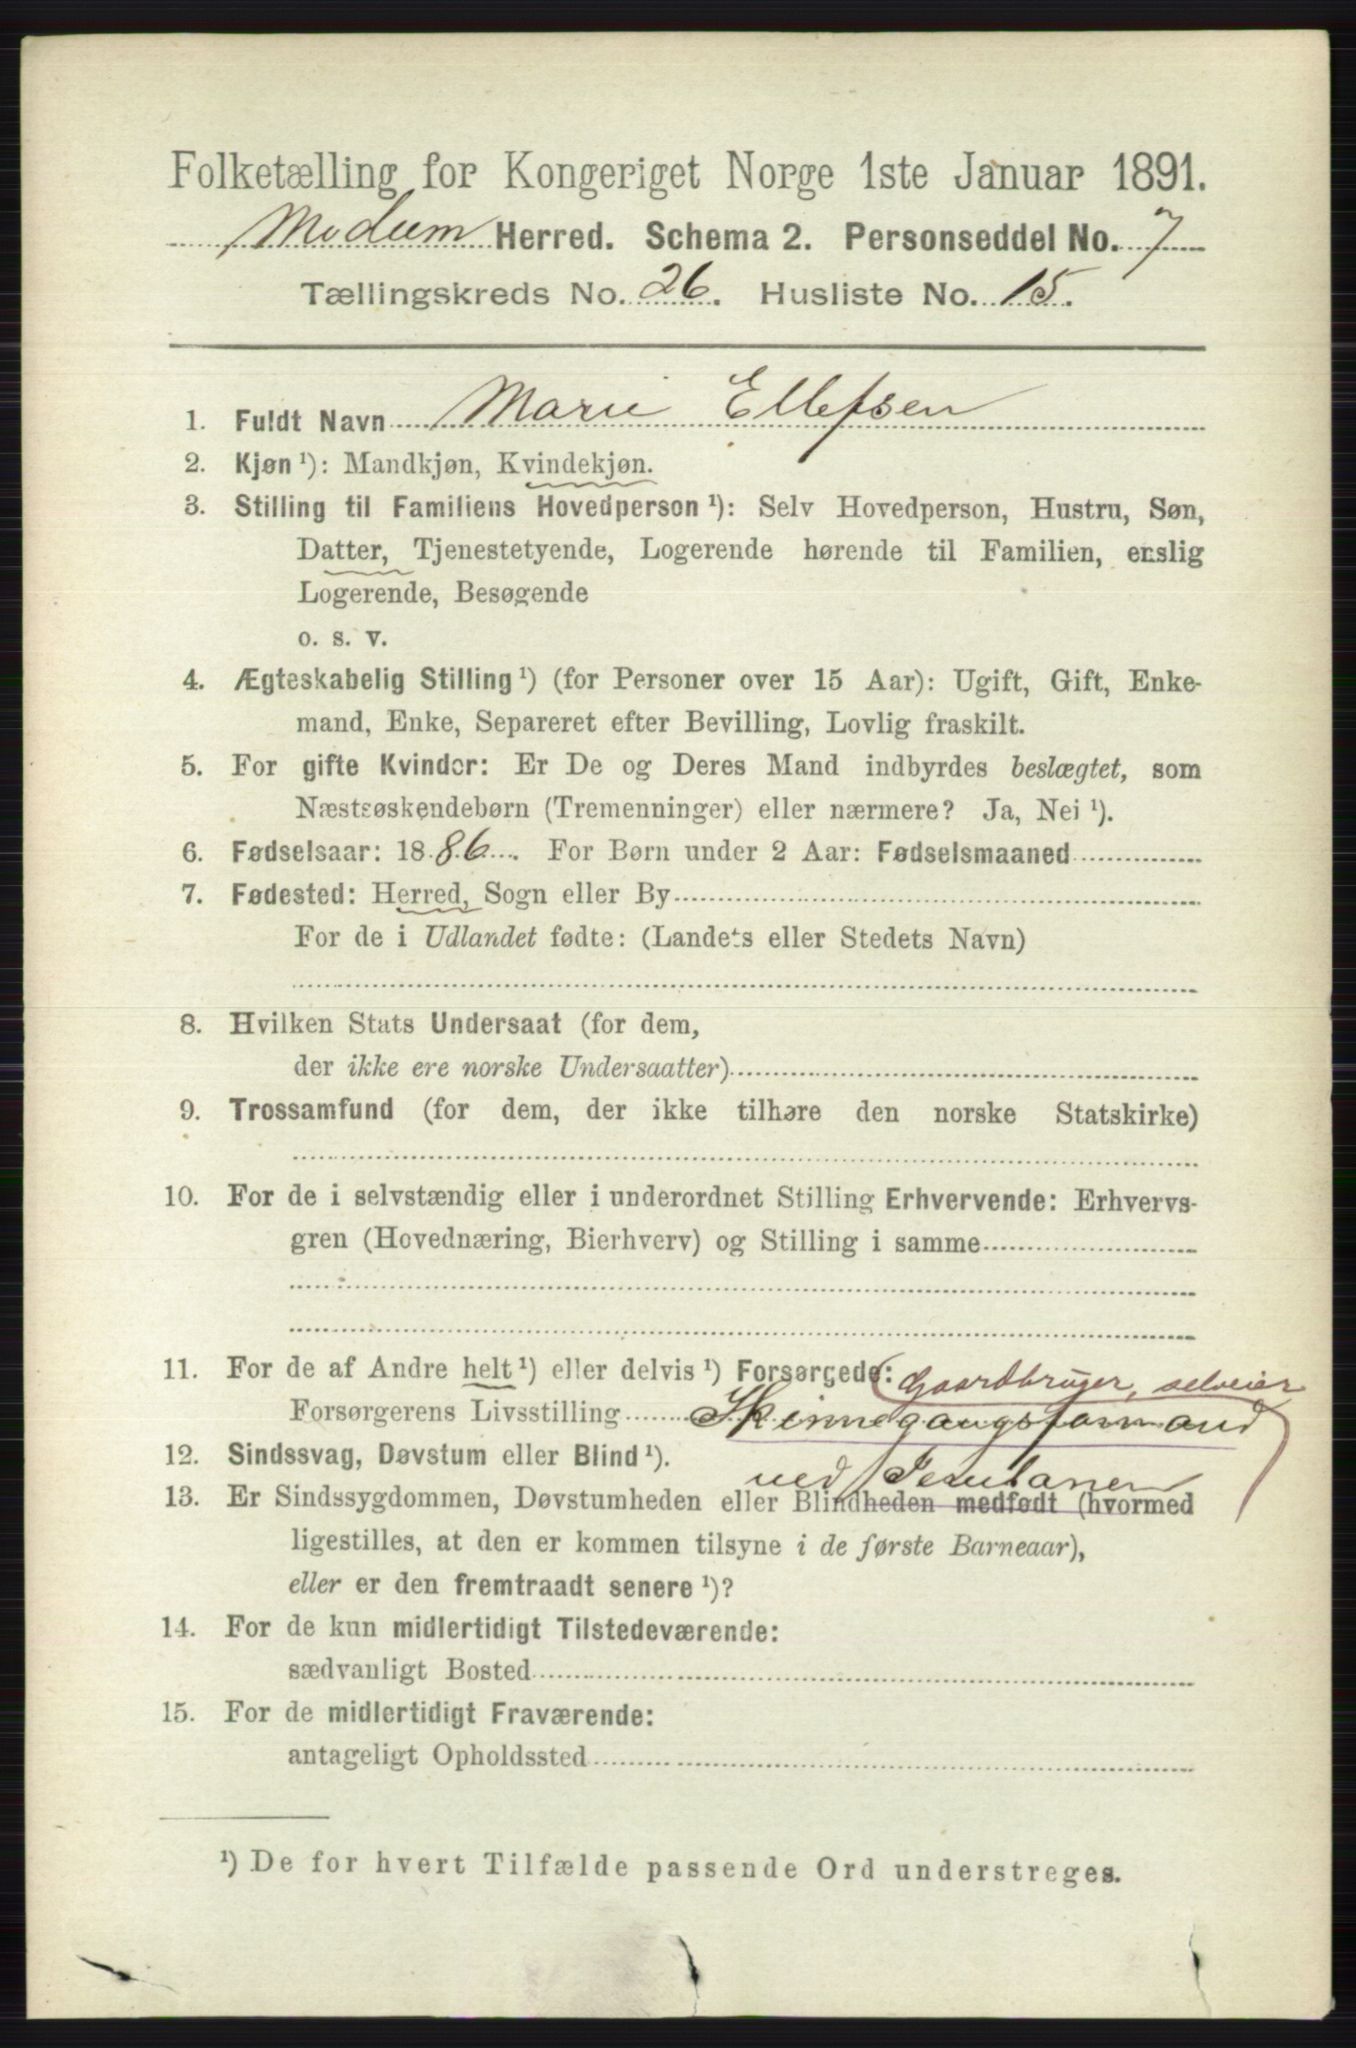 Folketælling for Kongeriget Norge 1ste Januar 1891.
Modum Herred. Schema 2. Personseddel No. 7
Tællingskreds No. 26. Husliste No. 15.
1. Fuldt Navn Marie Ellefsen
2. Kjøn ¹): Mandkjøn, Kvindekjøn.
3. Stilling til Familiens Hovedperson ¹): Selv Hovedperson, Hustru, Søn,
Datter, Tjenestetyende, Logerende hørende til Familien, enslig
Logerende, Besøgende
o. s. v.
4. Ægteskabelig Stilling ¹) (for Personer over 15 Aar): Ugift, Gift, Enke-
mand, Enke, Separeret efter Bevilling, Lovlig fraskilt.
5. For gifte Kvinder: Er De og Deres Mand indbyrdes beslægtet, som
Næstsøskendebørn (Tremenninger) eller nærmere? Ja, Nei ¹).
6. Fødselsaar: 1886. For Børn under 2 Aar: Fødselsmaaned
7. Fødested: Herred, Sogn eller By
For de i Udlandet fødte: (Landets eller Stedets Navn)
8. Hvilken Stats Undersaat (for dem,
der ikke ere norske Undersaatter)
9. Trossamfund (for dem, der ikke tilhøre den norske Statskirke)
10. For de i selvstændig eller i underordnet Stilling Erhvervende: Erhvervs-
gren (Hovednæring, Bierhverv) og Stilling i samme
11. For de af Andre helt ¹) eller delvis ¹) Forsørgede: Gaardbruger, selveier
Forsørgerens Livsstilling Skinnegangsformand
12. Sindssvag, Døvstum eller Blind ¹).
ved Jernbanen
13. Er Sindssygdommen, Døvstumheden eller Blindheden medfødt (hvormed
ligestilles, at den er kommen tilsyne i de første Barneaar),
eller er den fremtraadt senere ¹)?
14. For de kun midlertidigt Tilstedeværende:
sædvanligt Bosted
15. For de midlertidigt Fraværende:
antageligt Opholdssted
¹) De for hvert Tilfælde passende Ord understreges.